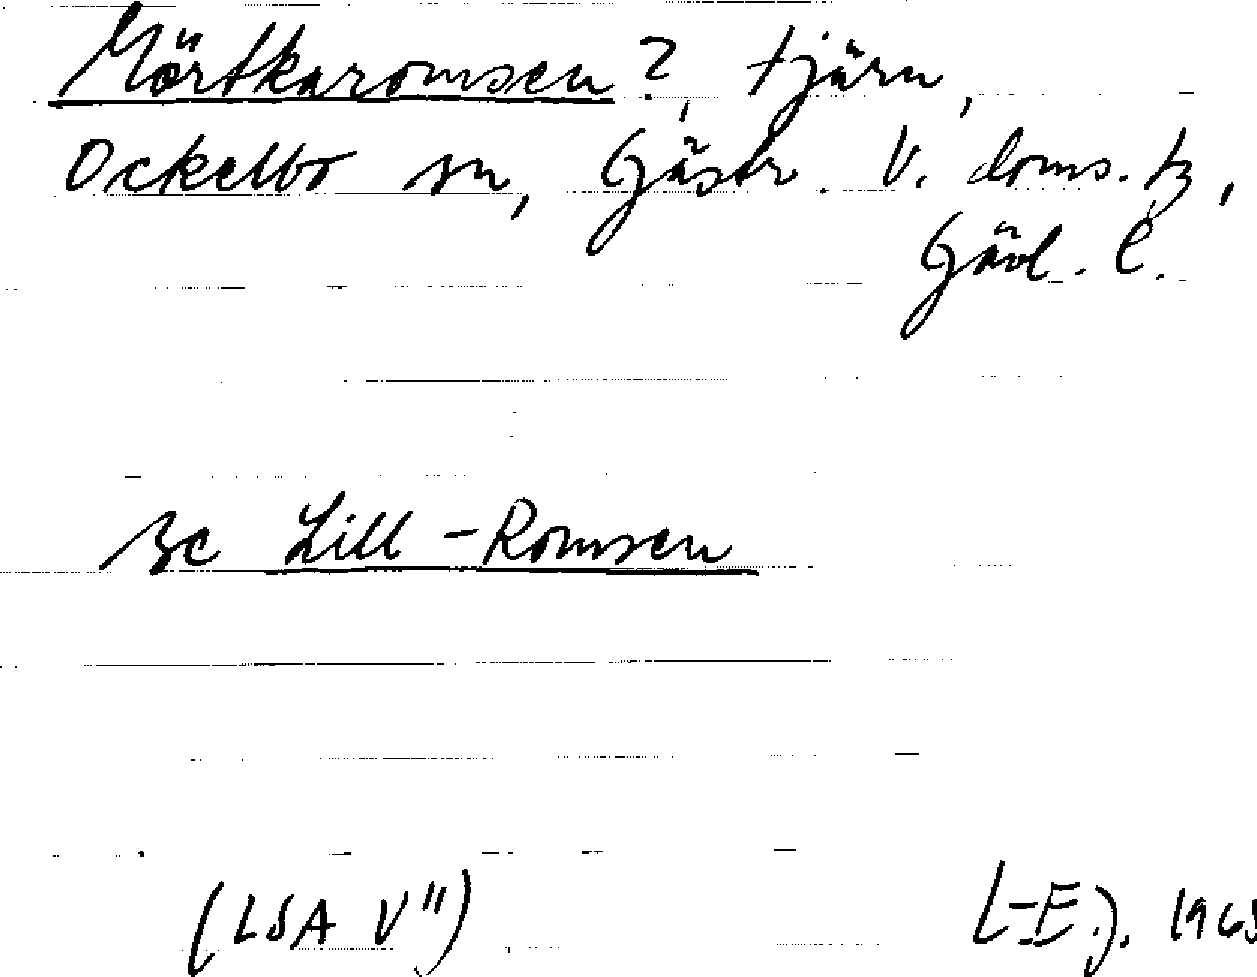 Mörtkaromsen?, tjärn,
Ockelbo sn, Gästr. V. doms. tz,
Gävl. l.
se Lill-Romsen
(LSA V")
L-E.J. 1963